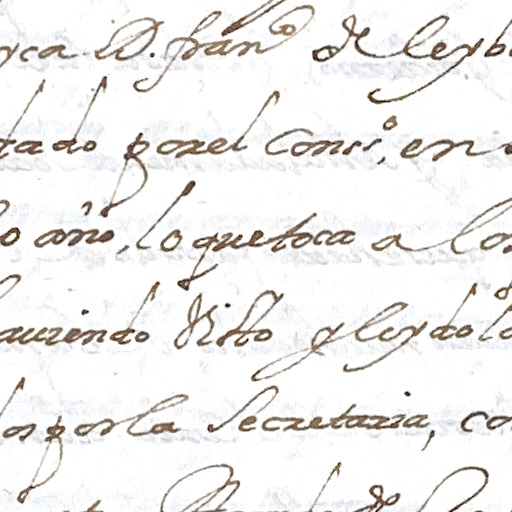 yca D. Fran.co de leyb
tado por el Conss.o, en
o año, lo que toca a los
auiendo Visto y leydo lo
os por la Secretaria, co